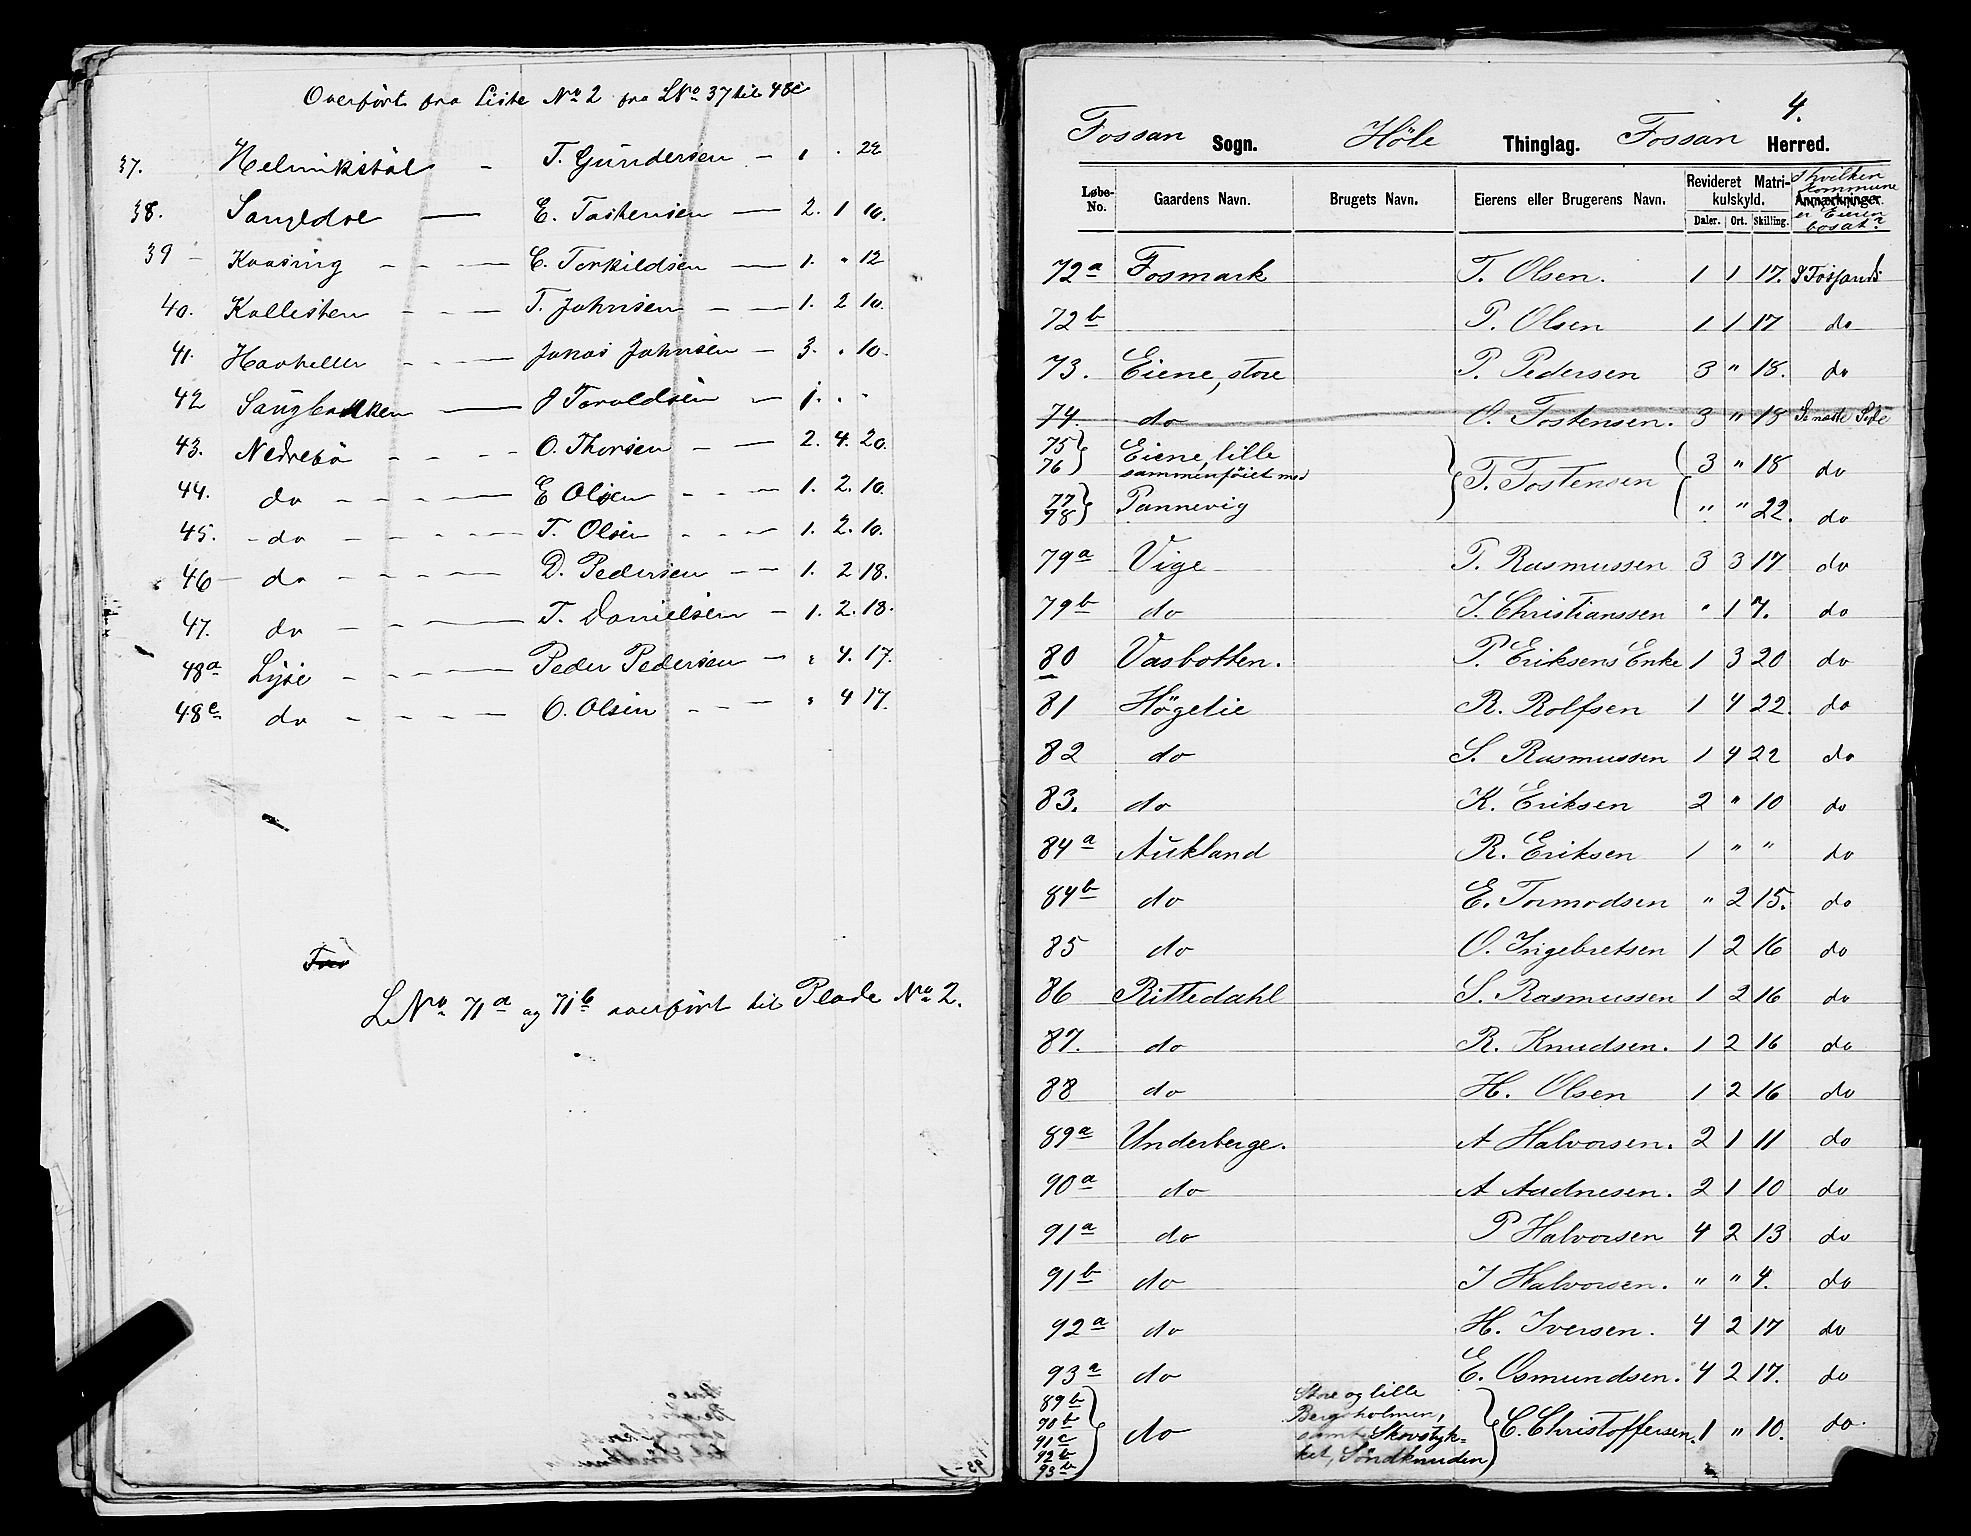 Overført fra Liste No 2 fra LNo 37 til 48c
37. Helmikstøl - T. Gundersen - 1 . 22
38. Songedal — E. Tostensen — 2. 1 10.
39 - Kaasing - - — C. Torkildsen — 1. " 12
40. Kallisten - - — T. Johnsen - — 1. 2 10.
41. Havheller - - — Jonas Johnsen — 3. " 10.
42 Saugbakken — J Taroldsen — 1. . .
43. Nedrebø - - - - O. Thorsen - — 2. 4. 20.
44. do - - - — E Olsen - - — 1. 2. 10.
45. - do - - - — T. Olsen - - — 1. 2. 10.
46 - do - - - — D. Pedersen — — 1. 2 18.
47. do - - - — T. Danielsen — 1. 2. 18.
48a Lyse - - - — Peder Pedersen — " 4. 17.
48c do - - - — O. Olsen - - — " 4 17.
LNo 71a og 71b overført til Plade No 2.
4.
Fossan Sogn. Høle Thinglag. Fossan Herred.
Løbe-No. Gaardens Navn. Brugets Navn. Eierens eller Brugerens Navn. Revideret Matrikulskyld. Anmærkninger.
I hvilken Kommune er Eieren bosat?
Daler. Ort. Skilling.
72a Fosmark T. Olsen. 1 1 17. I Fossands
72b P. Olsen 1 1 17 do
73. Eiene, store P. Pedersen 3 " 18. do
74. do O. Tostensen. 3 " 18 Se næste Side
75 76 } Eiene, lille sammenføiet med } T. Tostensen ( 3 " 18 do
77 78 } Pannevig ( " " 22. do
79a Vige T. Rasmussen 3 3 17 do
79b do J. Christianssen " 1 7. do
80 Vasbotten. P. Eriksens Enke 1 3 20 do
81 Høgelie R. Rolfsen 1 4 22. do
82 do S. Rasmussen 1 4 22 do
83. do K. Eriksen 2 " 10 do
84a Aukland R. Eriksen 1 " " do
84b do E. Tormodsen " 2 15. do
85 do O. Ingebretsen 1 2 16 do
86 Rittedahl S. Rasmussen 1 2 16 do
87. do R. Knudsen. 1 2 16 do
88 do H. Olsen 1 2 16 do
89a Underberge. A Halvorsen. 2 1 11 do
90a do A Audnesen. 2 1 10 do
91a do P Halvorsen 4 2 13 do
91b do J Halvorsen. " " 4. do
92a do H. Iversen. 4 2 17 do
93a do E. Osmundsen. 4 2 17. do
89b 90b 91c 92b 93b } do Store og lille Bergsholmen, samt Skovstykket, Søndknuden } C. Christoffersen. 1 " 10. do.